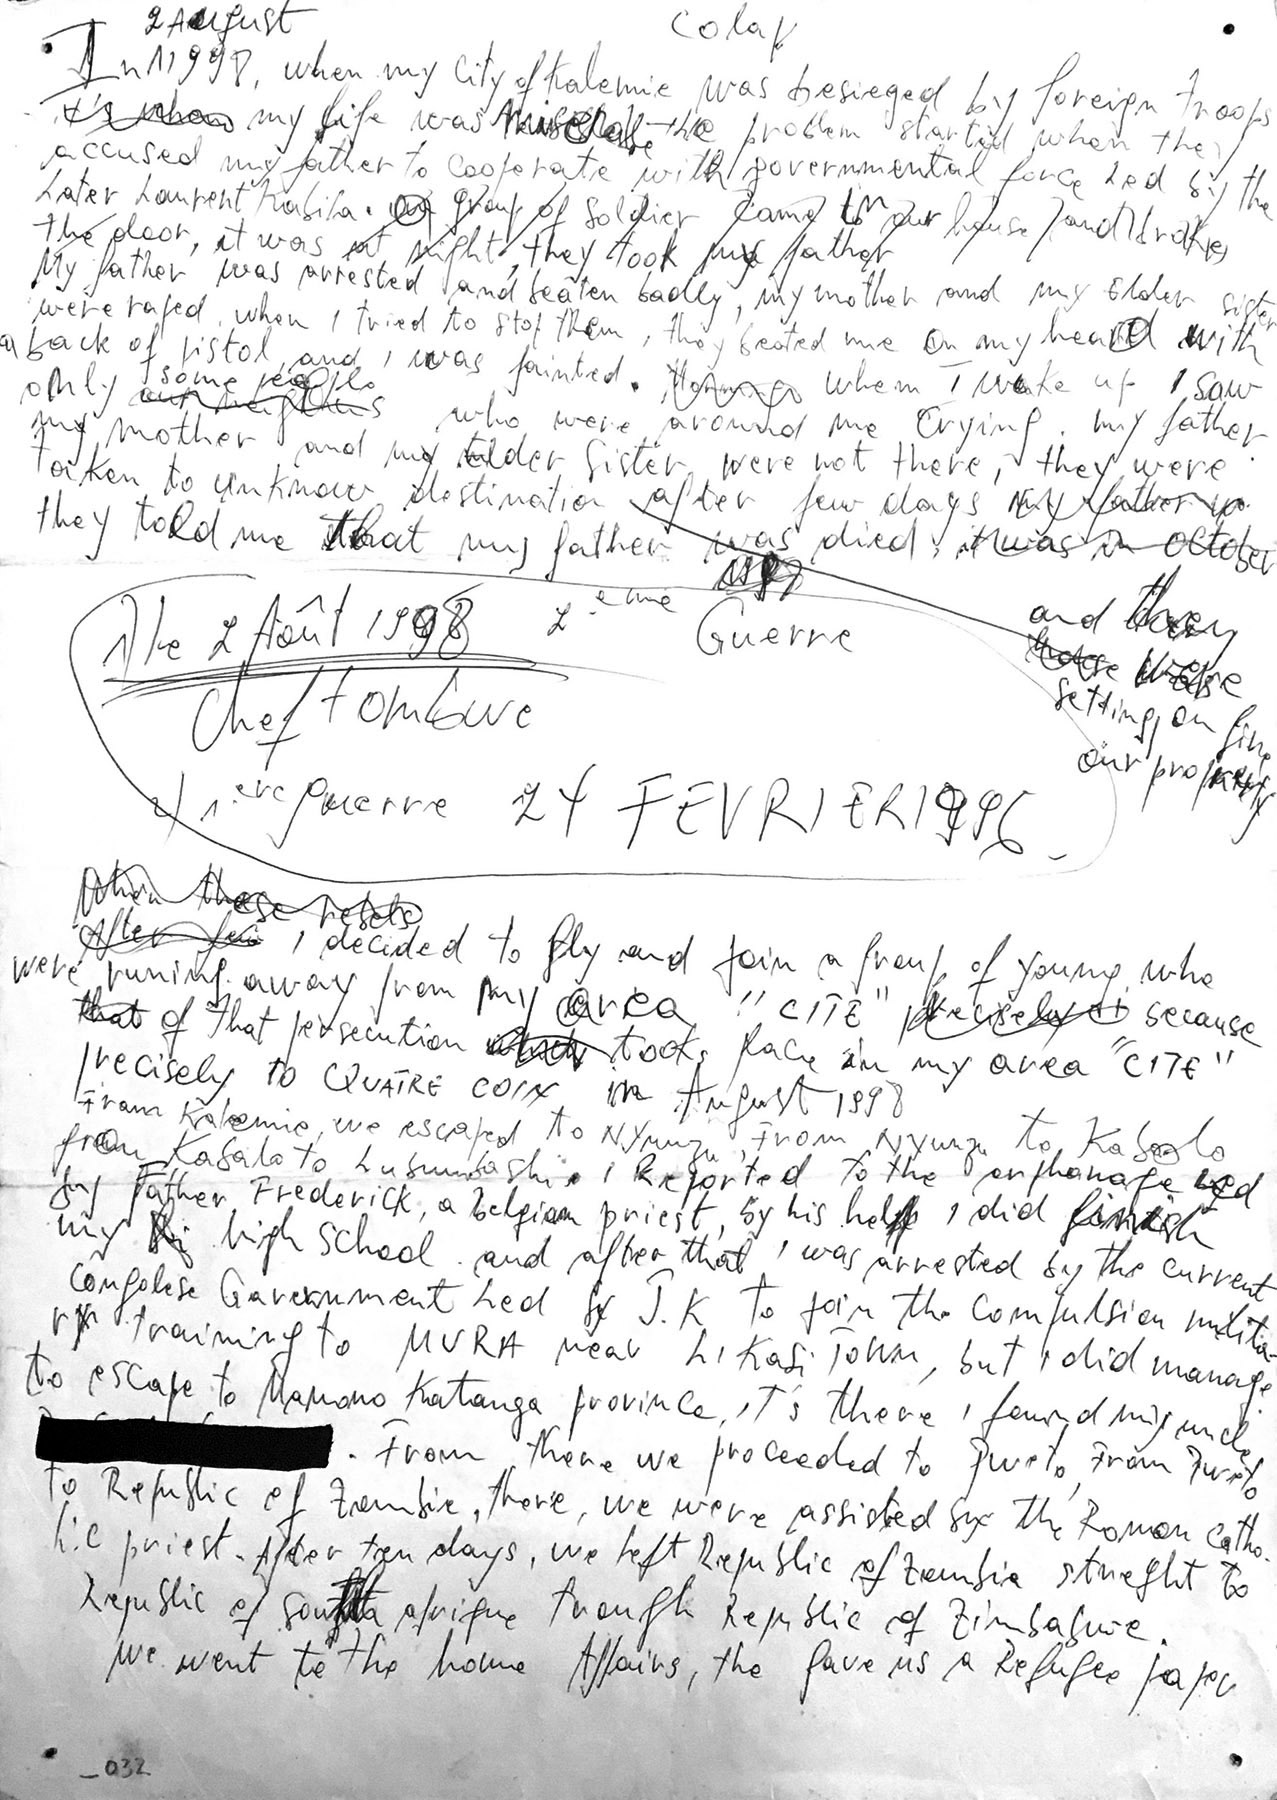 2 August
Colap
In 1998, when my City of Kalemie was besieged by foreign troops
it's when my life was miserable the problem started when they
accused my father to cooperate with governmental force Led by the
Later Laurent Kabila. group of soldier came to our house and broke
the door, it was at night, they took my father
My father was arrested and beaten badly, my mother and my older sister
were raped. when I tried to stop them, they beated me on my head with
a back of pistol and I was fainted. when I wake up I saw
only some people who were around me crying. my father
my mother and my older sister were not there, they were
taken to unknow destination after few days My father
they told me that my father was died, it was in October
1998
and they
were
setting on fire
our property
1) le 2 Août 1998 2 eme Guerre
Chef tombwe
2) 1 ere guerre 24 FEVRIER 1996
When these rebels
After few I decided to fly and join a group of young who
were runing away from my area "CITE" precisely at because
that of that persecution which took place in my area "CITE"
precisely to QUATRE COIN in August 1998
From Kalemie, we escaped to Nyunzu, From Nyunzu to Kabalo
from Kabalo to Lubumbashi. I Reported to the orphanage led
by Father Frederick, a Belgian priest, by his help I did finish
my high School and after that I was arrested by the current
congolese Government Led by J.K to join the compulsion milita-
ry training to MURA near Likasi Town, but I did manage
to escape to Manono Katanga province, it's there I found my uncle
. From there we proceeded to Pweto, From Pweto
to Republic of Zambie, there, we were assisted by the Roman catho-
lic priest. After ten days, we left Republic of Zambia streght to
Republic of South afrique trough Republic of Zimbabwe.
We went to the home Affairs, the gave us a Refugee paper
_032